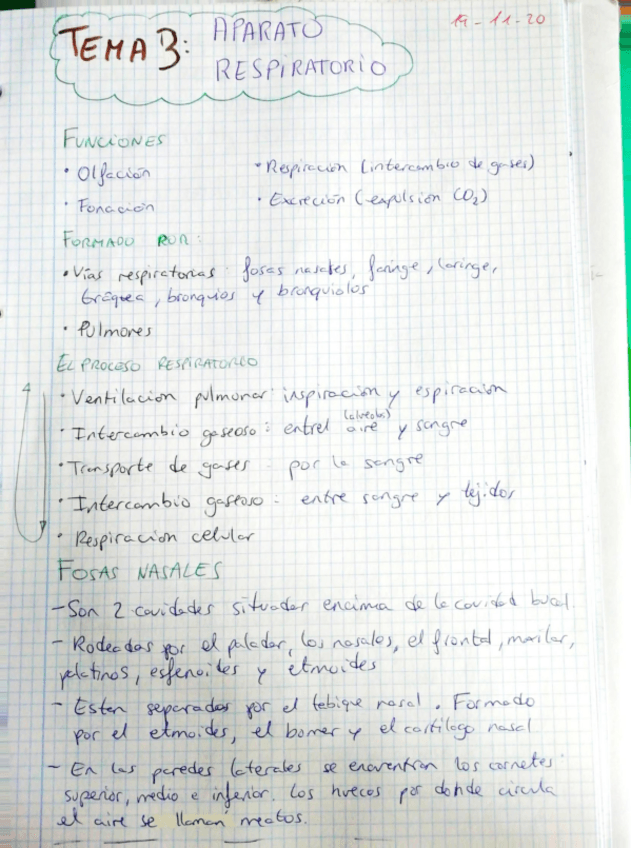 19-11-20
TEMA 3: APARATO
RESPIRATORIO
FUNCIONES
· Olfación
· Respiración (intercambio de gases)
· Fonación
· Excreción (expulsión CO₂)
FORMADO POR:
· Vías respiratorias: fosas nasales, faringe, laringe,
tráquea, bronquios y bronquiolos
· Pulmones
EL PROCESO RESPIRATORIO
· Ventilación pulmonar: inspiración y espiración
(alveolos)
· Intercambio gaseoso: entrel aire y sangre
· Transporte de gases: por la sangre
· Intercambio gaseoso: entre sangre y tejidos
· Respiración celular
FOSAS NASALES
- Son 2 cavidades situadas encima de la cavidad bucal.
- Rodeadas por el paladar, los nasales, el frontal, maxilar,
palatinos, esfenoides y etmoides
- Estan separadas por el tabique nasal. Formado
por el etmoides, el bomer y el cartílago nasal
- En las paredes laterales se encuentran los cornetes:
superior, medio e inferior. Los huecos por donde circula
el aire se llaman meatos.